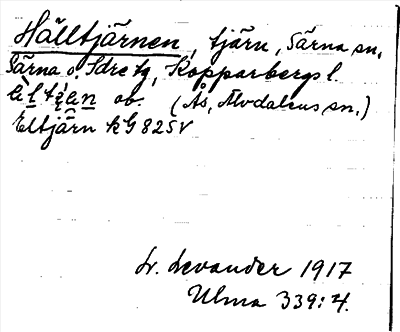 Hälltjärnen, tjärn, Särna sn,
Särna o. Idre tg, Kopparbergs l.
ob. (Ås, Älvdalens sn.)
Eltjärn kG 825V
Lr. Levander 1917
Ulma 339:4.